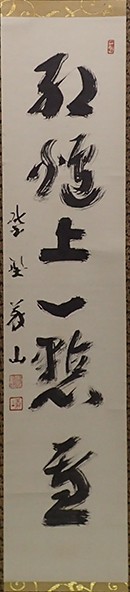 紅爐上一點雪
紫野 義山